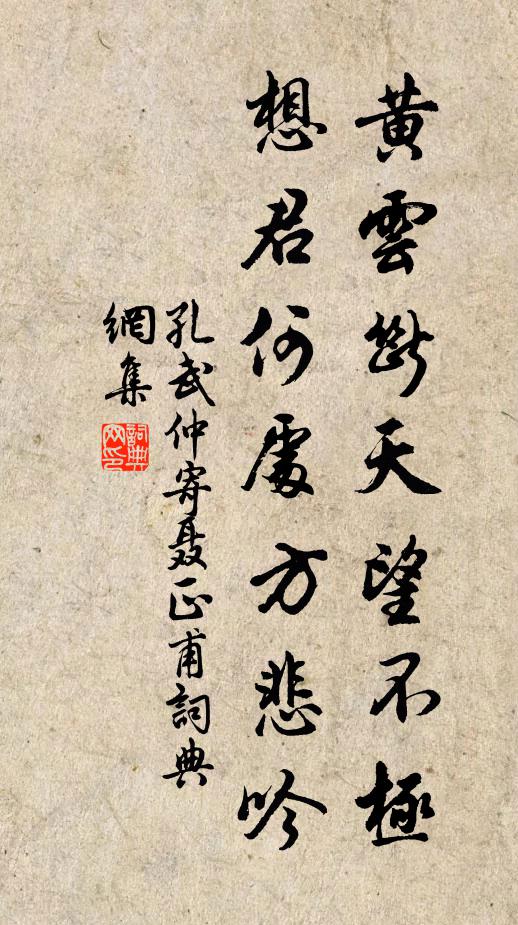 黃雲斷天望不極
想君何處方悲吟
孔武仲寄聂正甫詞典
網集
詞典网印